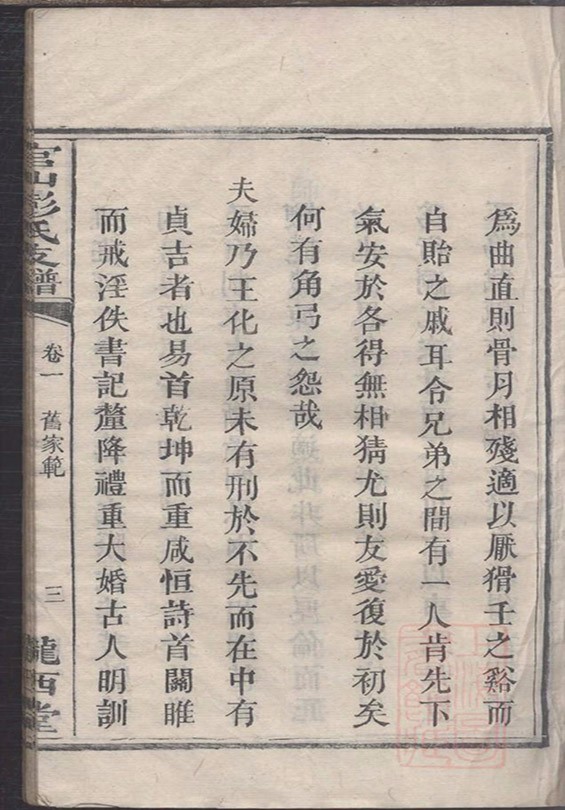 爲曲直則骨月相殘適以厭猾壬之谿而
自貽之戚耳令兄弟之間有一人肯先下
氣安於各得無相猜尤則友愛復於初矣
何有角弓之怨哉
夫婦乃王化之原未有刑於不先而在中有
貞吉者也易首乾坤而重咸恒詩首關雎
而戒淫佚書記釐降禮重大婚古人明訓
官山彭氏支譜
卷一
舊家範
三
隴西堂